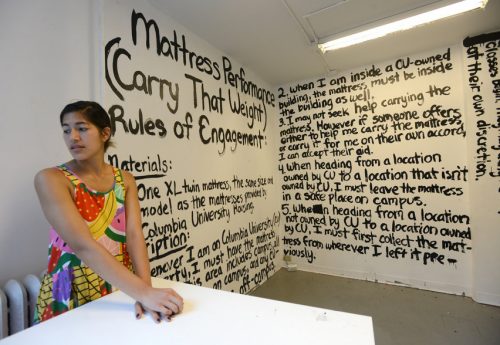 Mattress Performance
(Carry That Weight)
Rules of Engagement:
Materials:
One XL twin mattress, the same size and
model as the mattresses provided by
Columbia University Housing
ription:
henever I am on Columbia University
erty, I must have the mattress
area includes campus, all
on campus, and any CU
off-campus
2. When I am inside a CU-owned
building, the mattress must be inside
the building as well.
3. I may not seek help carrying the
mattress. However if someone offers
either to help me carry the mattress,
or carry it for me on their own accord,
I can accept their aid.
4. When heading from a location
owned by CU to a location that isn't
owned by CU, I must leave the mattress
in a safe place on campus.
5. When heading from a location
not owned by CU to a location owned
by CU, I must first collect the mat-
tress from wherever I left it pre-
viously.
at their own discretion.